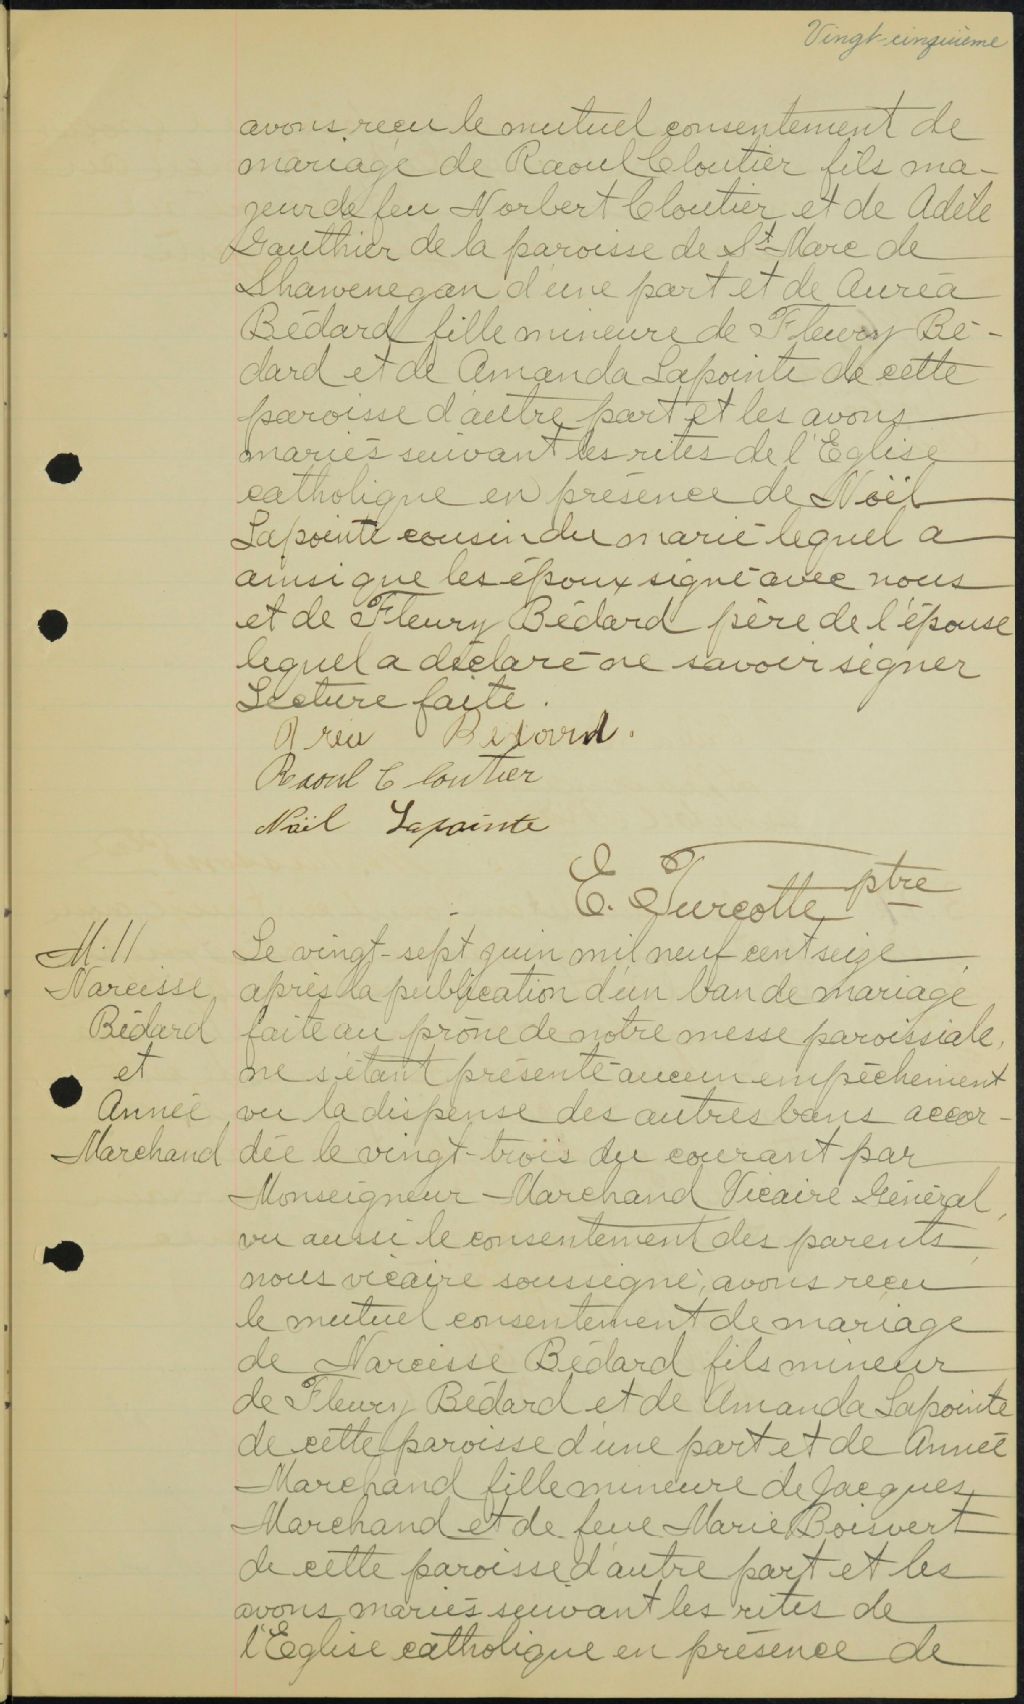 Vingt-cinquième
avons reçu le mutuel consentement de
mariage de Raoul Cloutier fils ma-
jeur de feu Norbert Cloutier et de Adèle
Gauthier de la paroisse de St Marc de
Shawenegan d'une part et de Auréa
Bédard fille mineure de Fleury Bé-
dard et de Amanda Lapointe de cette
paroisse d'autre part et les avons
mariés suivant les rites de l'Eglise
catholique en présence de Noël
Lapointe cousin du marié lequel a
ainsi que les époux signé avec nous
et de Fleury Bédard père de l'épouse
lequel a déclaré ne savoir signer
Lecture faite.
Raoul Cloutier
Noël Lapointe
E. Turcotte ptre
M. 11
Narcisse
Bédard
et
Année
Marchand
Le vingt-sept juin mil neuf cent seize
après la publication d'un ban de mariage
faite au prône de notre messe paroissiale,
ne s'étant présenté aucun empêchement
vu la dispense des autres bans accor-
dée le vingt-trois du courant par
Monseigneur Marchand Vicaire Général,
vu aussi le consentement des parents,
nous vicaire soussigné, avons reçu
le mutuel consentement de mariage
de Narcisse Bédard fils mineur
de Fleury Bédard et de Amanda Lapointe
de cette paroisse d'une part et de Année
Marchand fille mineure de Jacques
Marchand et de feue Marie Boisvert
de cette paroisse d'autre part et les
avons mariés suivant les rites de
l'Eglise catholique en présence de